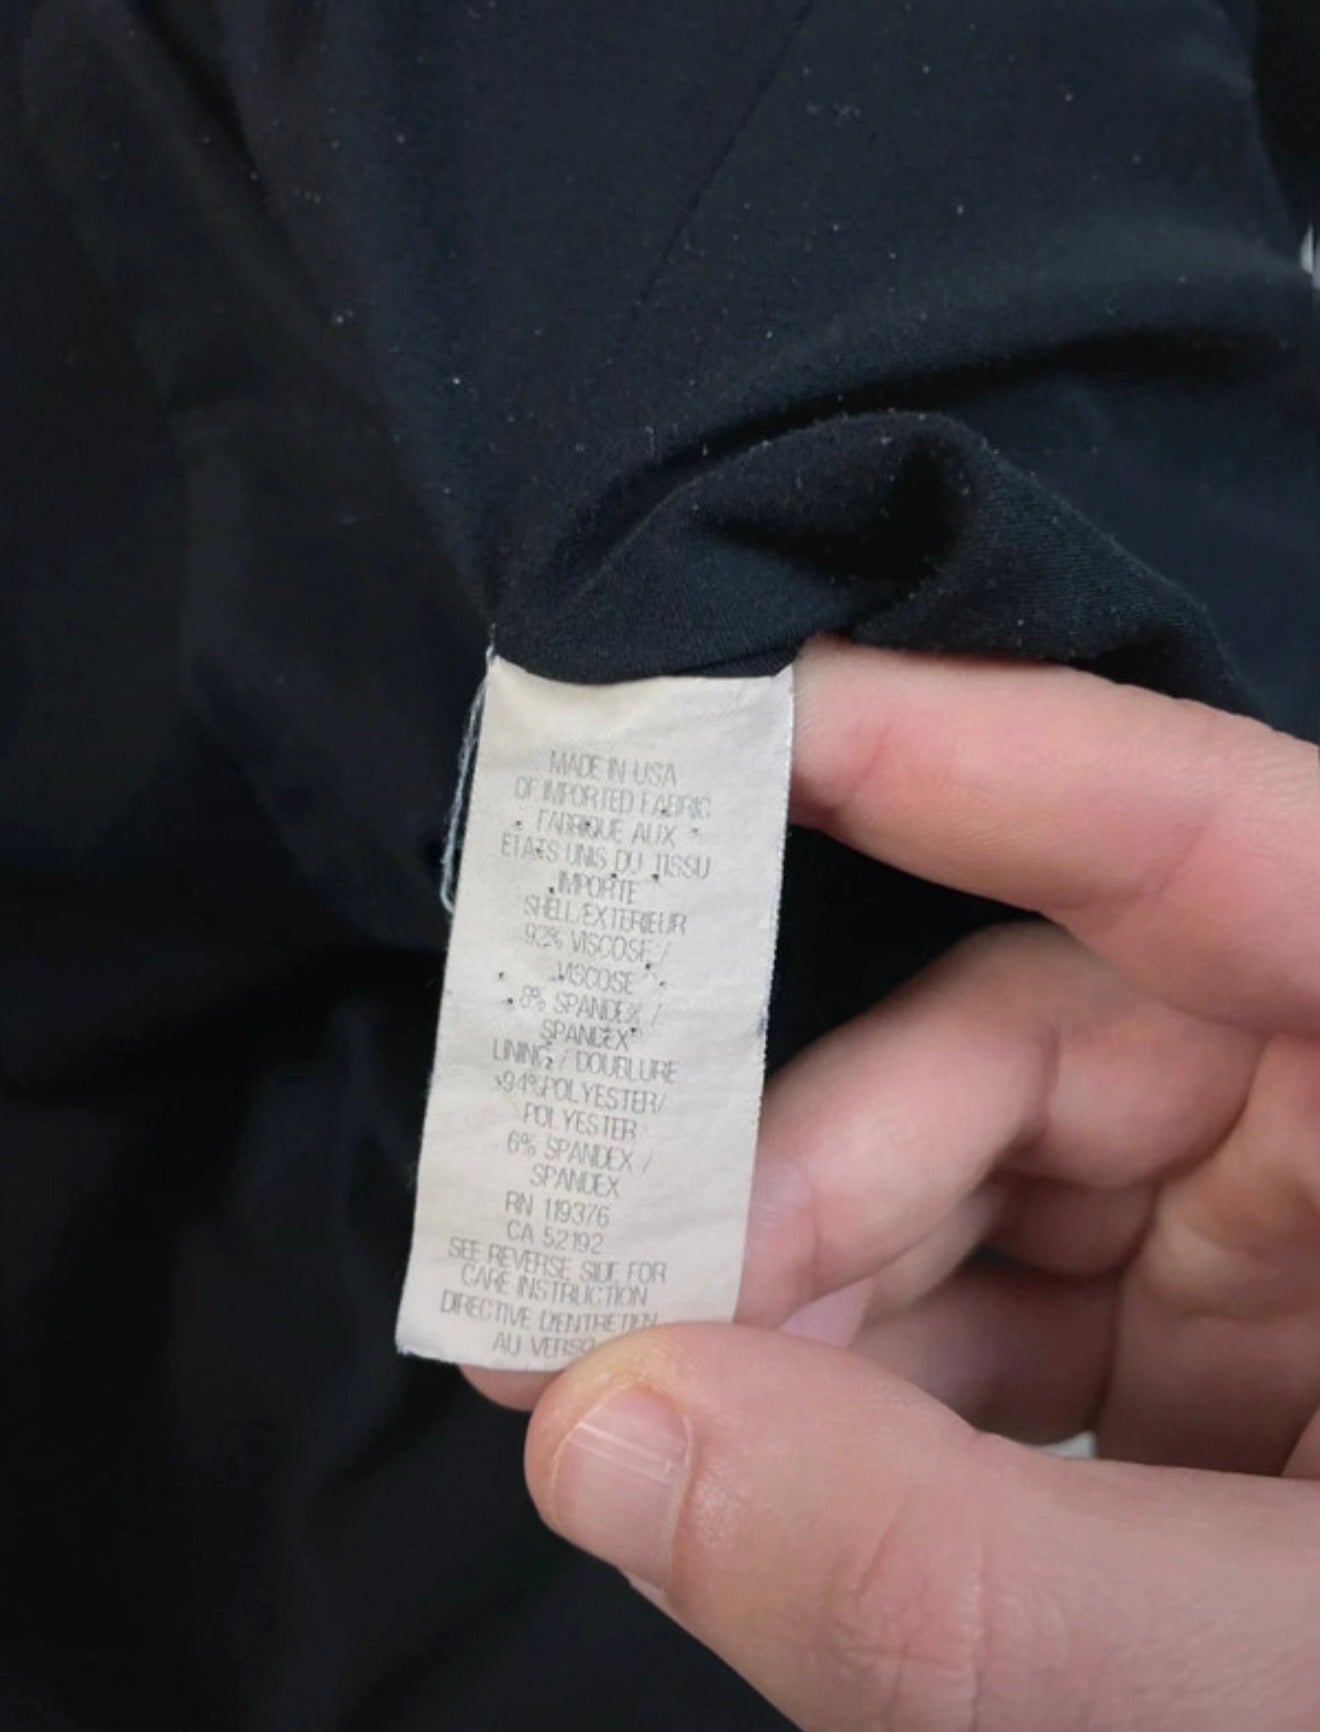 MADE IN USA
OF IMPORTED FABRIC
FABRIQUE AUX
ETATS UNIS DU TISSU
IMPORTE
SHELL/EXTERIEUR
92% VISCOSE /
VISCOSE
8% SPANDEX /
SPANDEX
LINING / DOUBLURE
94%POLYESTER/
POLYESTER
6% SPANDEX /
SPANDEX
RN 119376
CA 52192
SEE REVERSE SIDE FOR
CARE INSTRUCTION
DIRECTIVE D'ENTRETIEN
AU VERSO